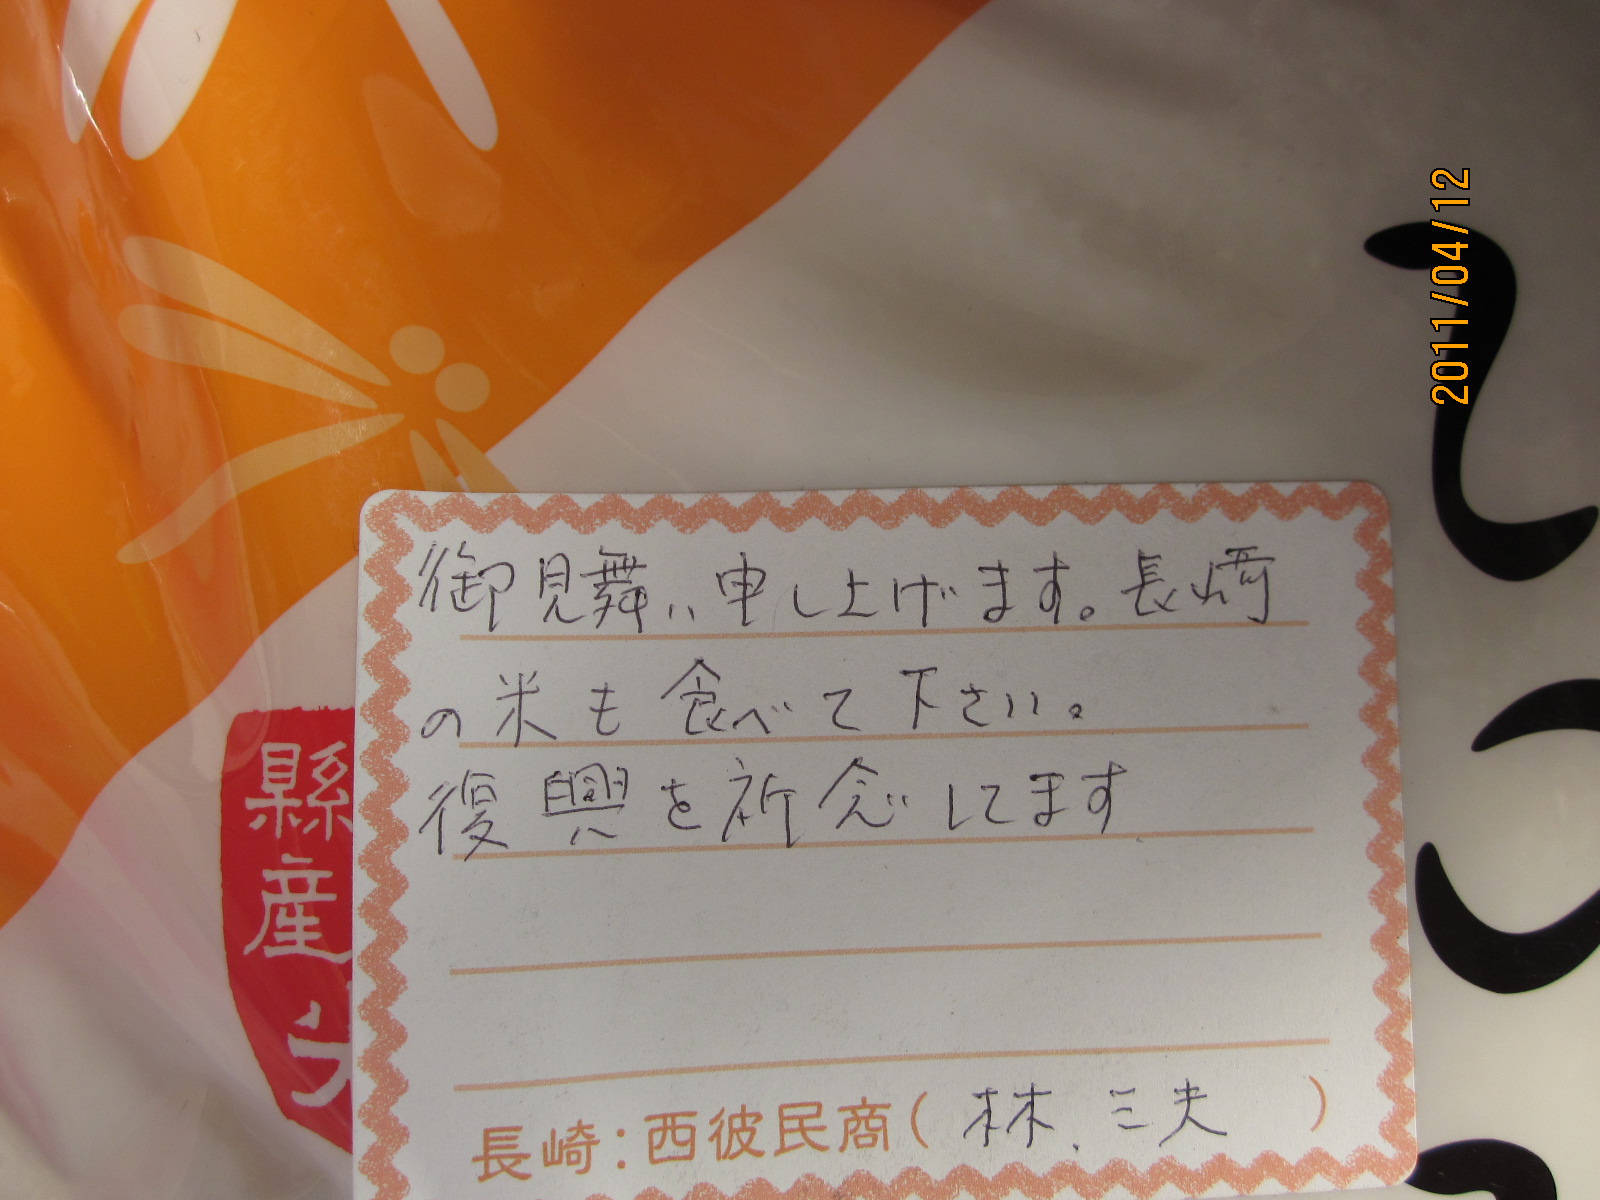 2011/04/12
御見舞い申し上げます。長崎
の米も食べて下さい。
復興を祈念してます
長崎:西彼民商( 林 三夫 )
縣産米